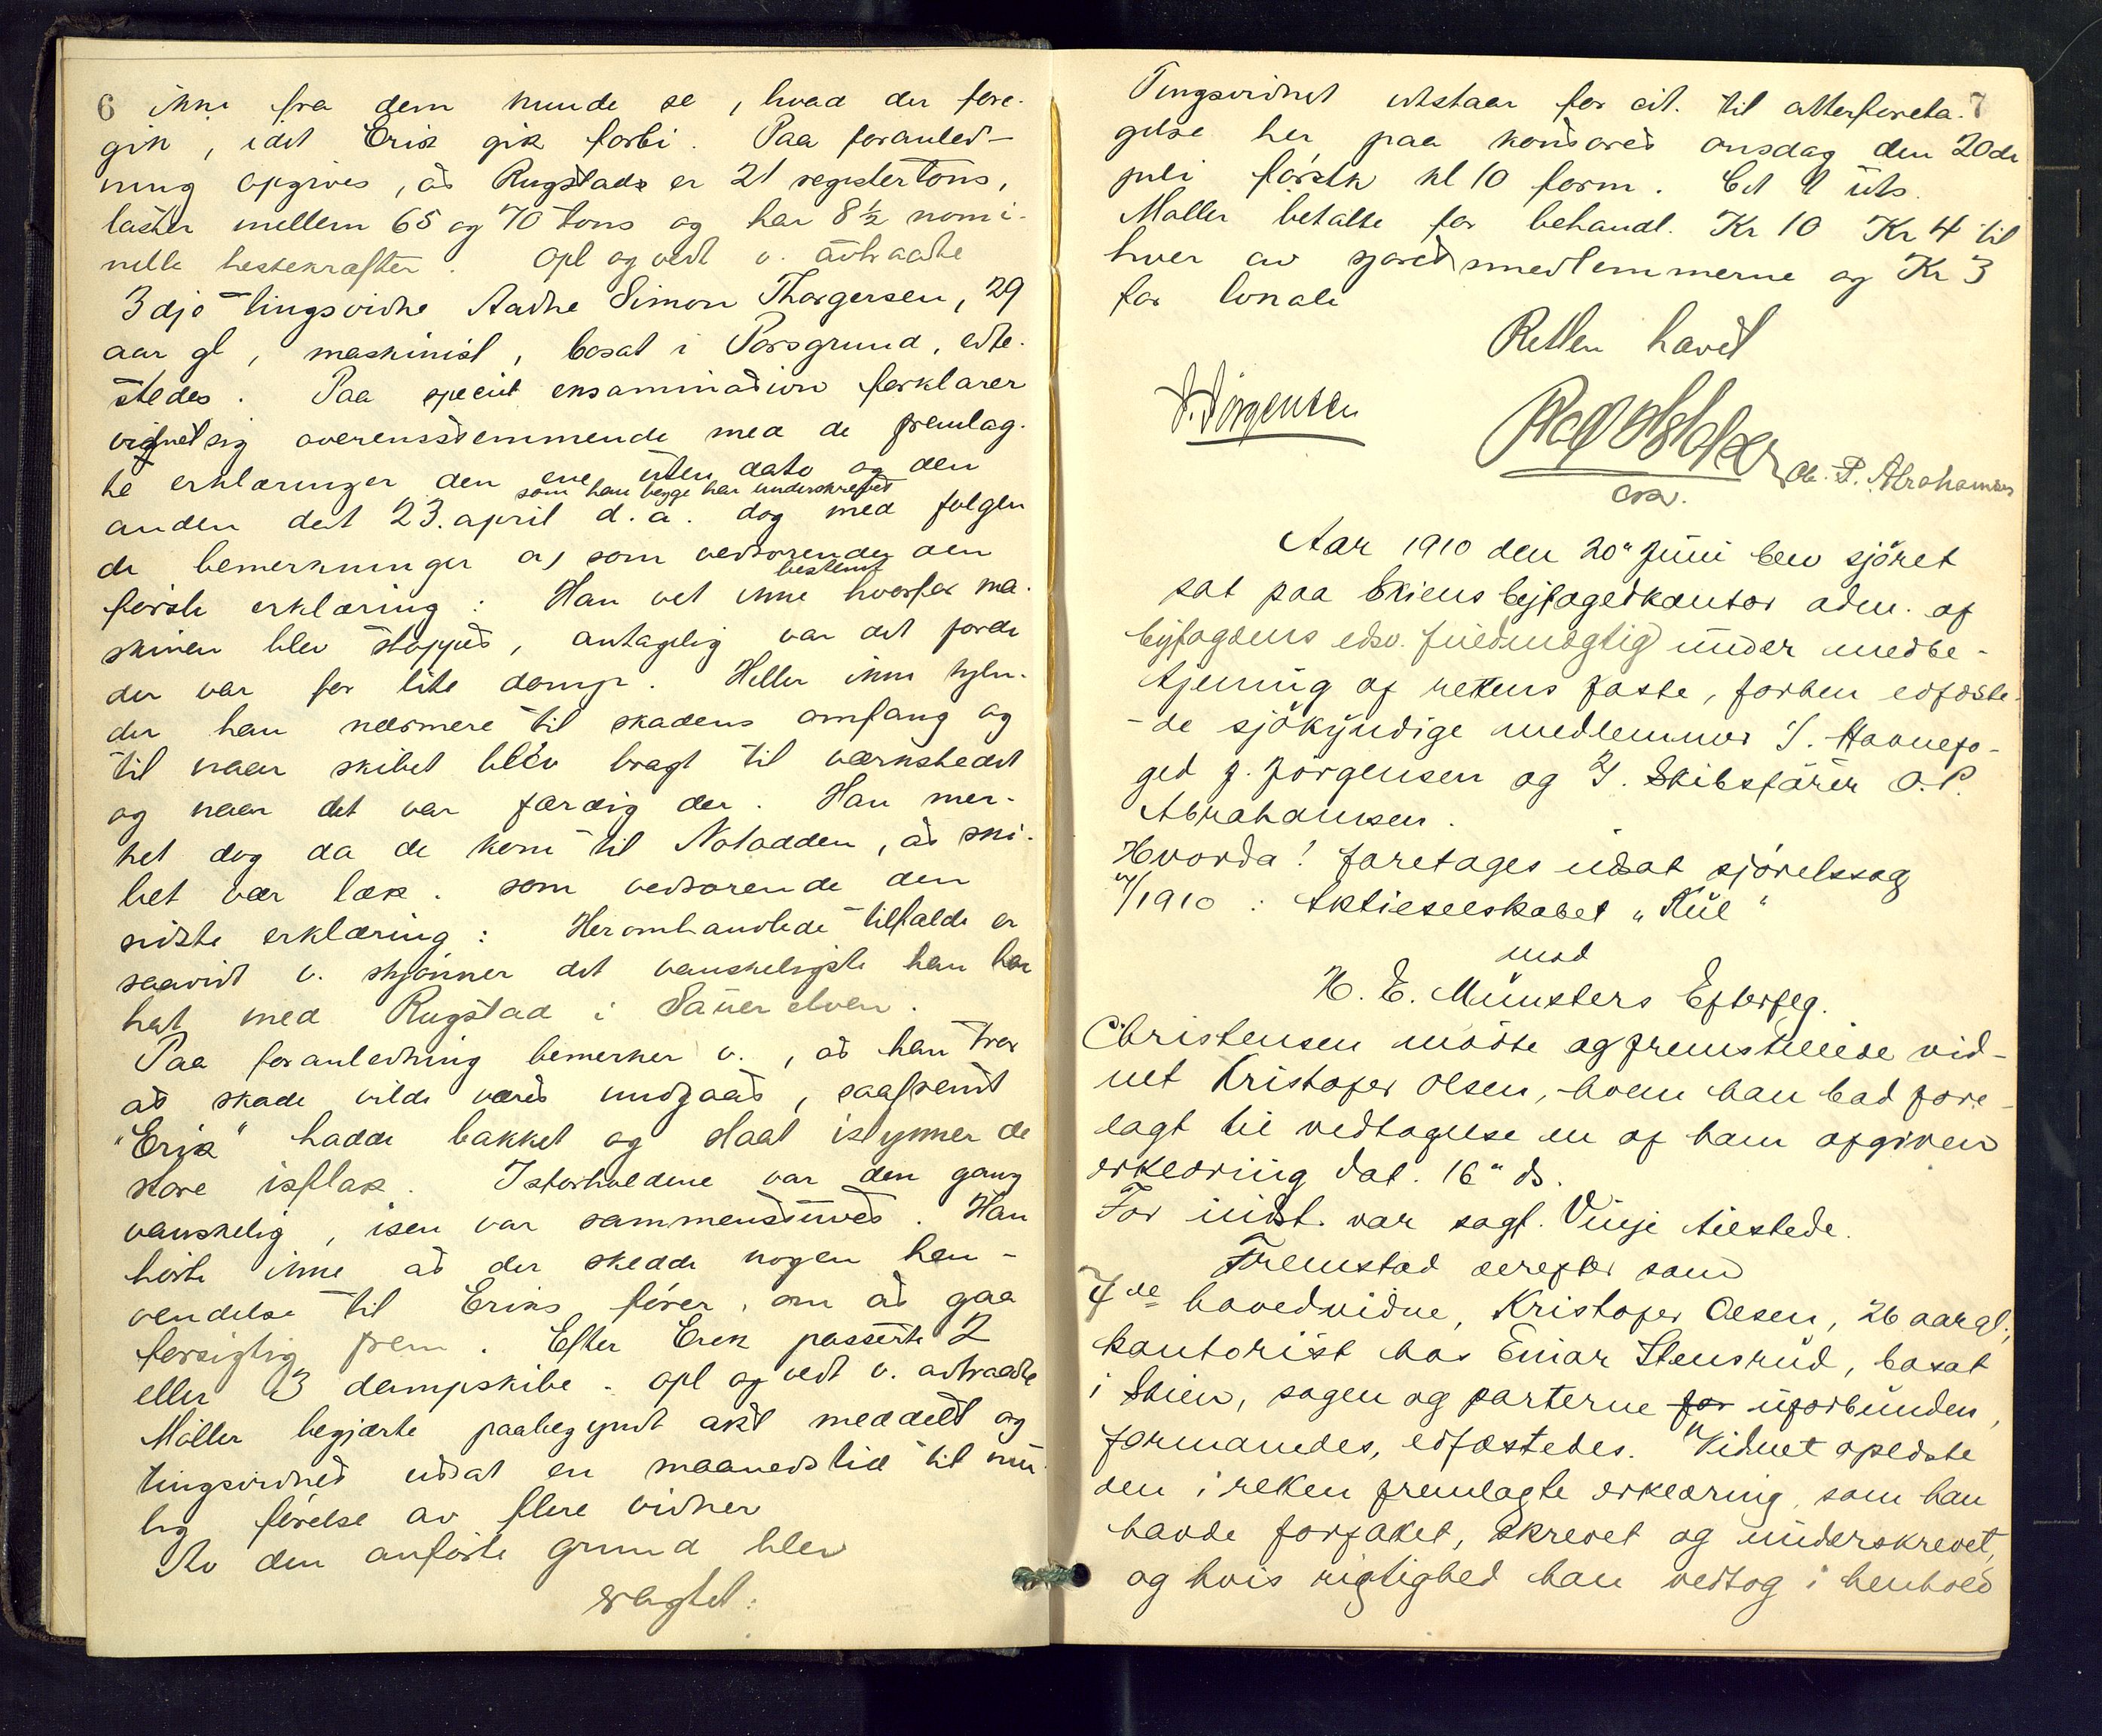 6 ikke fra dem kunde se, hvad der fore-
gik, idet Erik gik forbi. Paa foranled-
ning opgives, at Rugstads er 21 registertons,
laster mellem 65 og 70 tons og har 8 ½ nomi-
nelle hestekræfter. Opl og vedt v. avtraadte
3dje tingsvidne Aadne Simon Thorgersen, 29
aar gl, maskinist, bosat i Porsgrund, edfe-
stedes. Paa speciel eksamination forklarer
vidnet sig overensstemmende med de fremlag-
te erklæringer den ene uten dato og den
som han begge har underskrevet
anden dat 23. april d.a. dog med følgen
de bemerkninger a, som vedrørende den
bestemt
første erklæring: Han vet ikke hvorfor ma-
skinen blev stoppet, antagelig var det fordi
der var for lite damp. Heller ikke kjen-
der han nærmere til skadens omfang og
til naar skibet blev bragt til værkstedet
og naar det var færdig der. Han mer-
ket dog da de kom til Notodden, at ski-
bet var læk. som vedrørende den
sidste erklæring: Heromhandlede tilfælde er
saavidt v. skjønner det vanskeligste han har
hat med Rugstad i Sauerelven.
Paa foranledning bemerker v., at han tror
at skade vilde været undgaat, saafremt
"Erik" hadde bakket og slaat istykker de
store isflak. Isforholdene var den gang
vanskelig, isen var sammenstuvet. Han
hørte ikke at der skedde nogen hen-
vendelse til Eriks fører, om at gaa
forsigtig frem. Efter Erik passerte 2
eller 3 dampskibe. opl og vedt v. avtraadte
Møller begjærte paabegyndt akt meddelt og
tingsvidnet utsat en maanedstid til mu-
lig førelse av flere vidner
Av den anførte grund blev
eragtet:
Tingsvidnet utstaar for cit. til atterforeta- 7
gelse her paa kontoret onsdag den 20de
juli førstk kl 10 form. Cit 4 uts.
Møller betalte for behandl. Kr 10 Kr 4 til
hver av sjøretsmedlemmerne og Kr 3
for lokale
Retten hævet
J. Jørgensen
Ole. P. Abrahamsen
Aar 1910 den 20de Juni blev sjöret
sat paa Skiens byfogedkontor adm. af
byfogdens edsv. fuldmægtig under medbe-
tjening af rettens faste, forhen edfæste-
-de sjökyndige medlemmer 1. Havnefo-
ged J. Jörgensen og 2. Skibsförer O.P.
Abrahamsen.
Hvorda! foretages udsat sjöretssag
/1910: Aktieselskabet "Kul"
mod
H. E. Münsters Efterflg.
Christensen mödte og fremstillede vid-
net Kristofer Olsen, hvem han bad fore-
lagt til vedtagelse en af ham afgiven
erklæring dat. 16de ds.
For indst. var sagf. Vinje tilstede.
Fremstod derefter som
4de hovedvidne, Kristofer Olsen, 26 aar gl.,
kontorist hos Einar Stensrud, bosat
i Skien, sagen og parterne for uforbunden,
formanedes, edfæstedes. Vidnet oplæste
den i retten fremlagte erklæring, som han
havde forfattet, skrevet og underskrevet,
og hvis rigtighed han vedtog i henhold